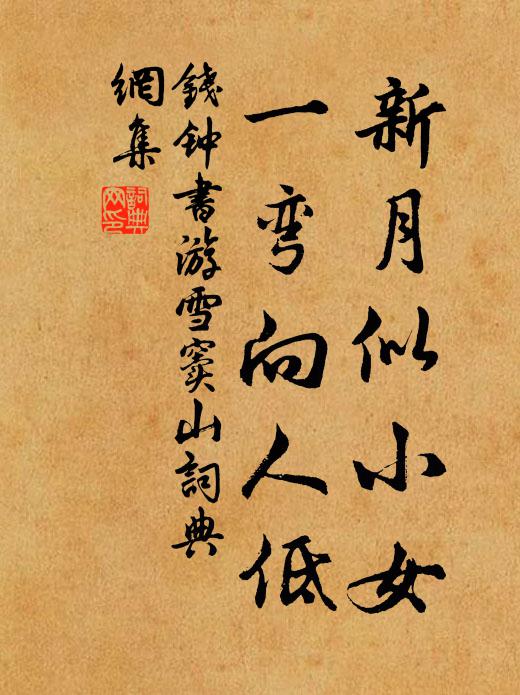 新月似小女
一弯向人低
钱钟书游雪窦山词典
網集
詞典網印